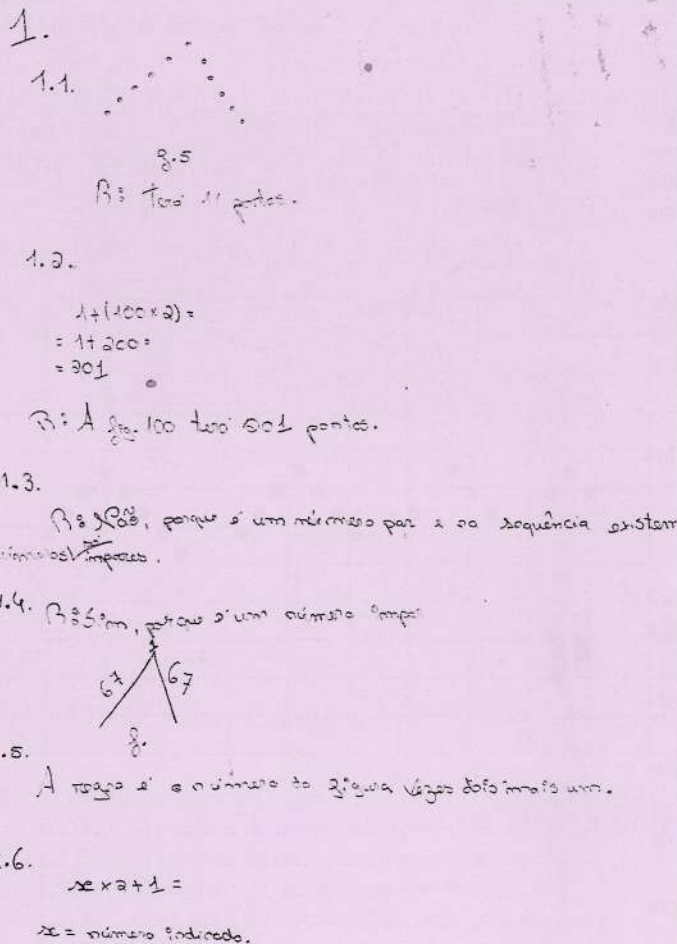 1.
1.1.
f.5
R: Terá 11 pontos.
1.2.
1+(100×2)=
= 1+200=
= 201
R: A fig. 100 terá 201 pontos.
1.3.
R: Não, porque é um número par e na sequência existem
números ímpares.
1.4. R: Sim, porque é um número ímpar
1
67 67
f.
.5.
A regra é o número da figura vezes dois mais um.
.6.
x×2+1=
x= número indicado.